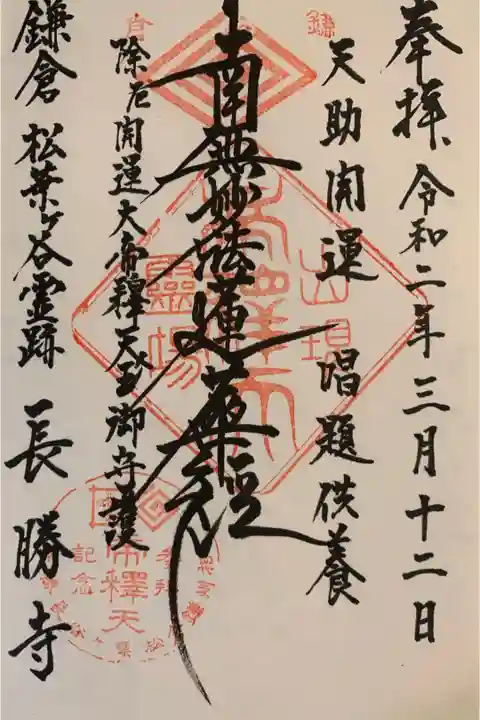 奉拝 令和二年三月十二日
天助開運 唱題供養
南無妙法蓮華経
除厄開運大帝釋天王御守護
鎌倉 松葉ヶ谷霊跡 長勝寺
出現
靈場
帝釋天
参拝
記念